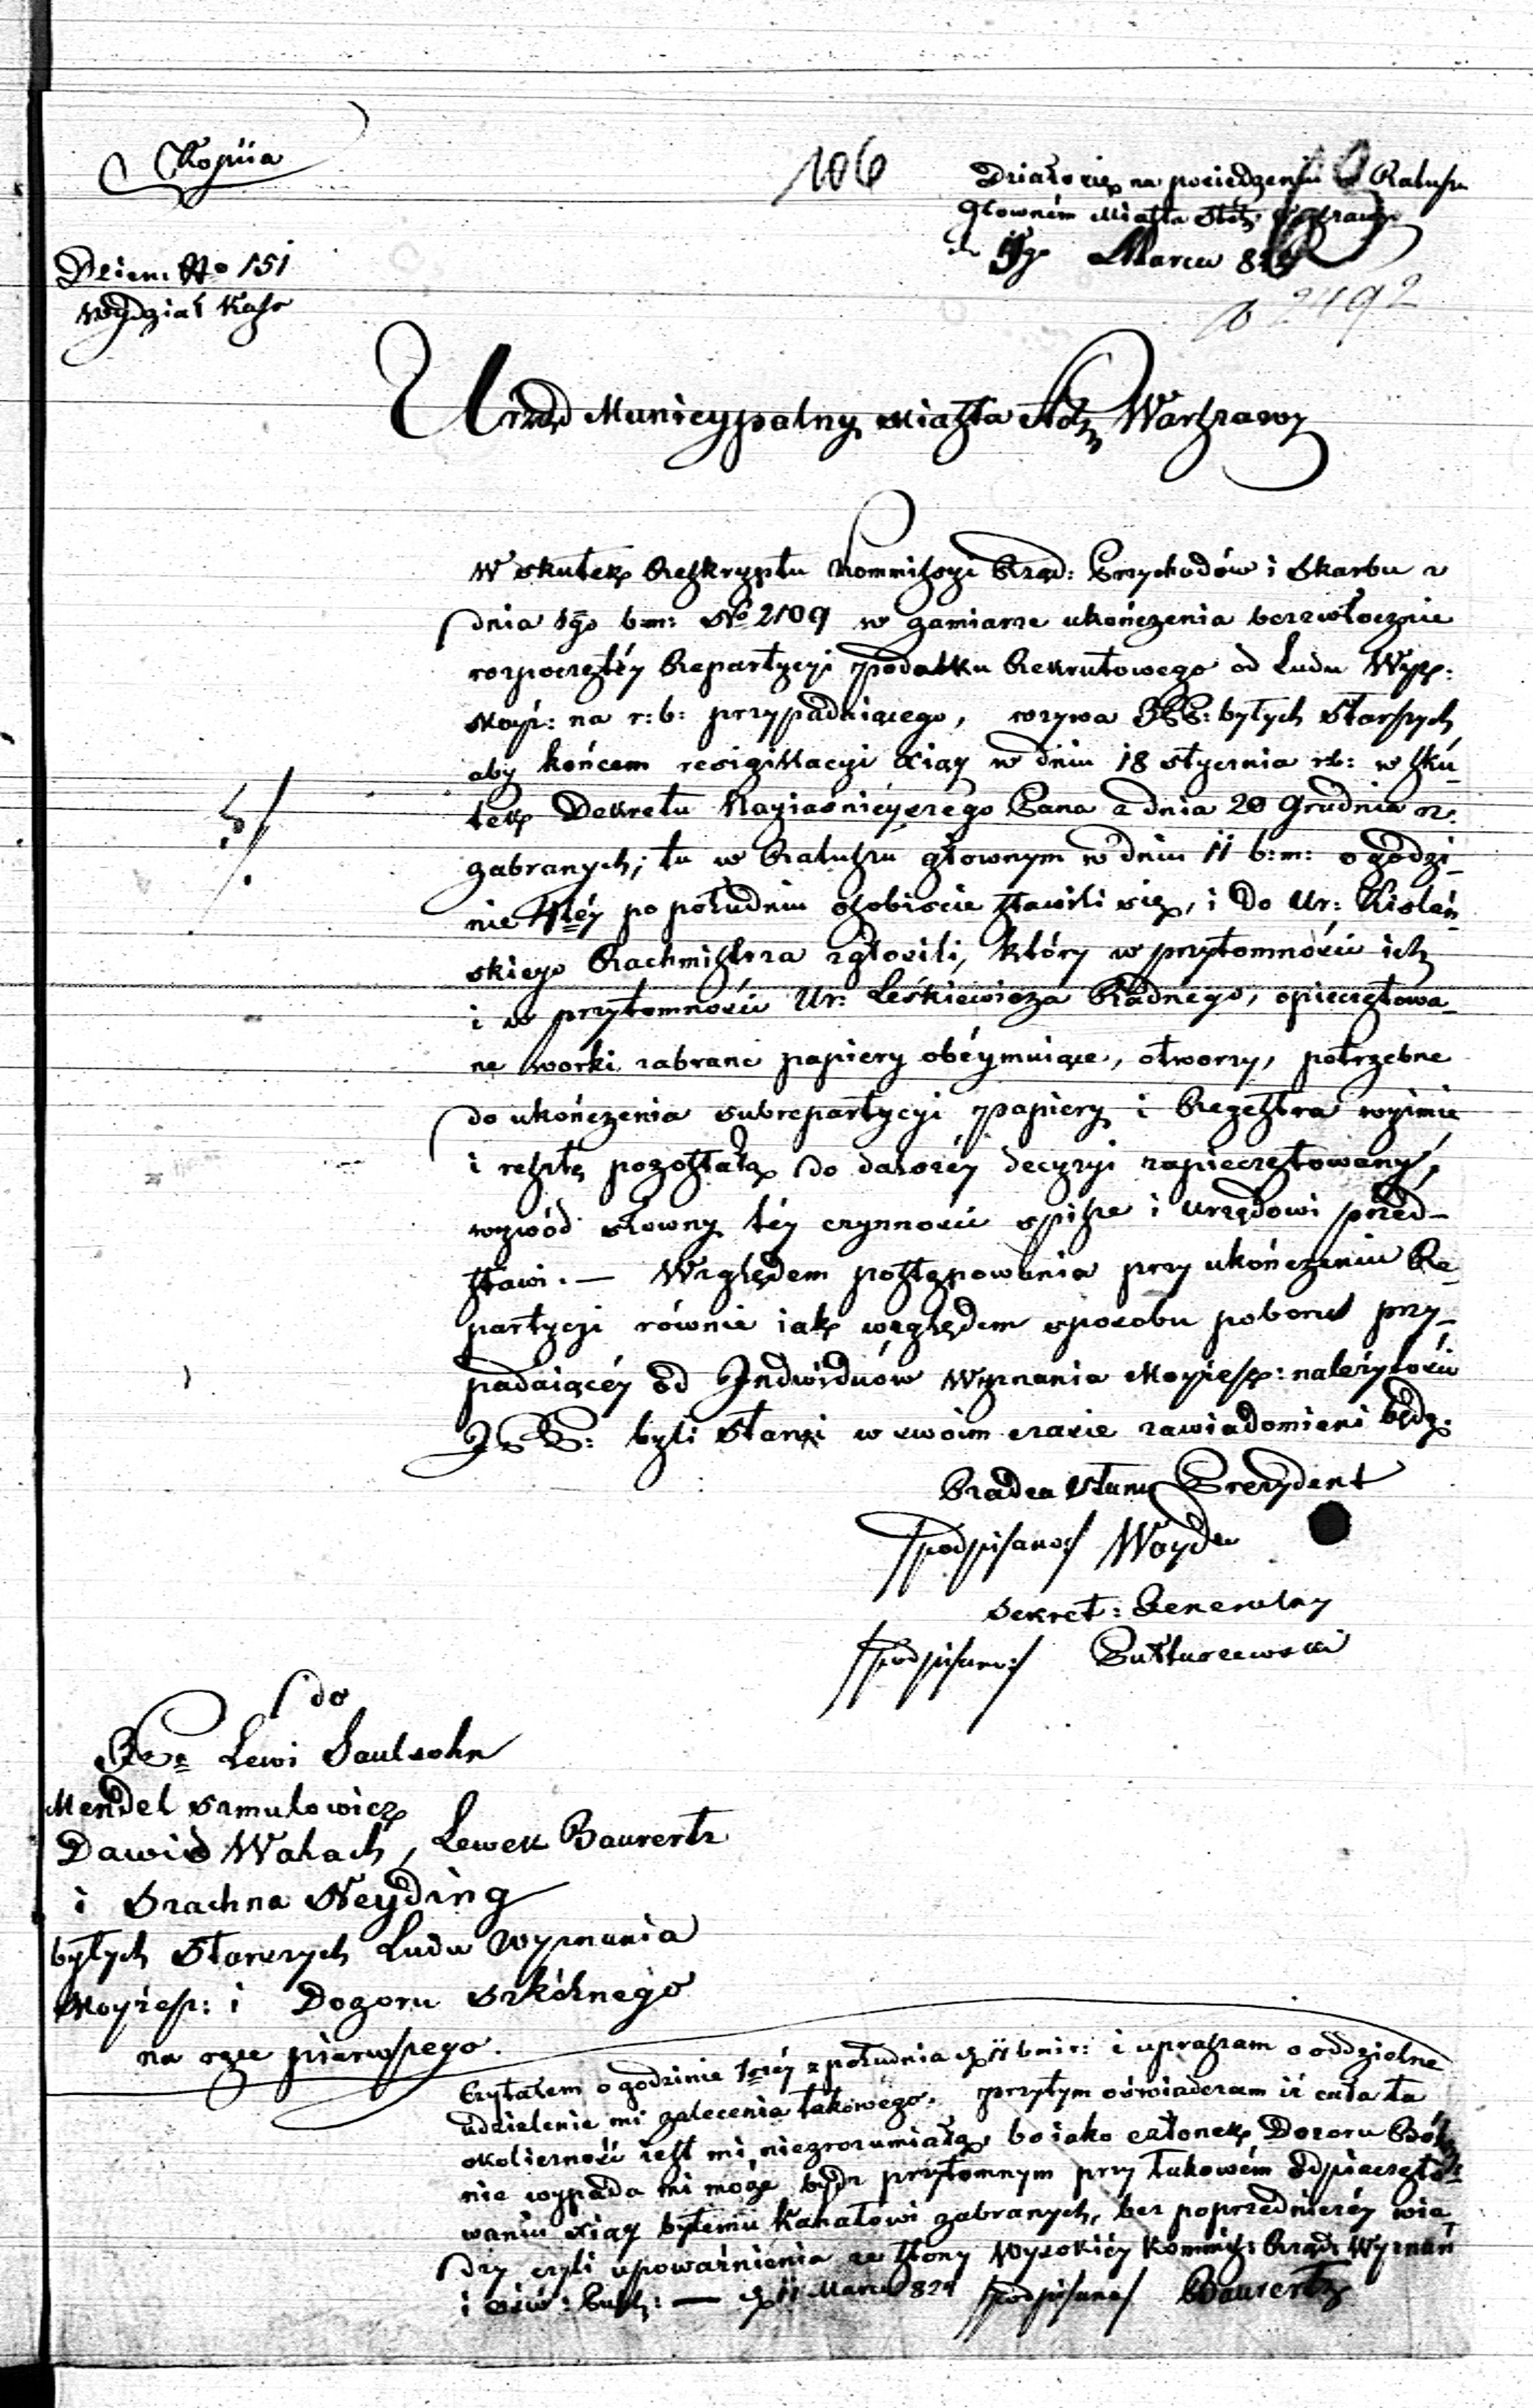 Kopiia
106
Działo się na posiedzeniu w Ratuszu
Głowném Miasta Stoł: Warszawy
Marca
2492
Dzien: No 151
Wydział Kass
Urząd Municypalny Miasta Stoł: Warszawy
W skutek Reskryptu Kommissyi Rząd: Przychodów i Skarbu z
dnia b:m: No 2109 w zamiarze ukończenia bezzwłocznie
rozpoczętéy Repartycyi podatku Rekrutowego od Ludu Wyz:
Moyż: na r:b: przypadaiącego, wzywa byłych Starszych
aby końcem resigillacyi xiąg w dniu 18 stycznia rb: w sku-
tek Dekretu Nayiaśnieyszego Pana z dnia 20 Grudnia
zabranych, tu w Ratuszu głownym w dniu 11 b:m: o godzi-
nie 4téy po południu osobiscie stawili się, i do Ur: Kisiań-
skiego Rachmistrza zgłosili, który w przytomności ich
i w przytomności Ur: Leśkiewicza Radnego, opieczętowa-
ne worki zabrane papiery obéymuiące, otworzy, potrzebne
do ukończenia subrepartycyi papiery i Regestra wyimie
i resztę pozostałą do dalszéy decyzyi zapieczętowany,
wywód słowny téy czynności spisze i Urzędowi przed-
stawi. — Względem postępowania przy ukończeniu Re-
partycyi równie iak względem sposobu poboru przy-
padaiącéy od Indwiduów Wyznania Moyżesz: należytości
byli Starsi w swoim czasie zawiadomieni będą.
Radca Stanu Prezydent
/podpisano/ Woyda
Sekret: Generalny
/podpisano/
do
Lewi Saulsohn
Mendel Szmulowicz
Dawid Walach, Lewek Bauerertz
i Szachna Neyding
byłych Starszych Ludu Wyznania
Moyżesz: i Dozoru Szkólnego
na ręce pierwszego.
Czytałem o godzinie z południa d. 11 bm i r: i upraszam o oddzielne
udzielenie mi zalecenia takowego, przytym oświadczam iż cała ta
okoliczność iest mi niezrozumiałą, bo iako członek Dozoru Bóż:
nie wypada mi może bydz przytomnym przy takowém odpieczęto-
waniu xiąg byłemu Kahałowi zabranych, bez poprzedniczéy wie-
dzy czyli upoważnienia ze strony Wysokiéy Kommis: Rząd: Wyznań
i Ośw: Publ: — d. 11 Marca 821 /podpisano/ Bauerertz